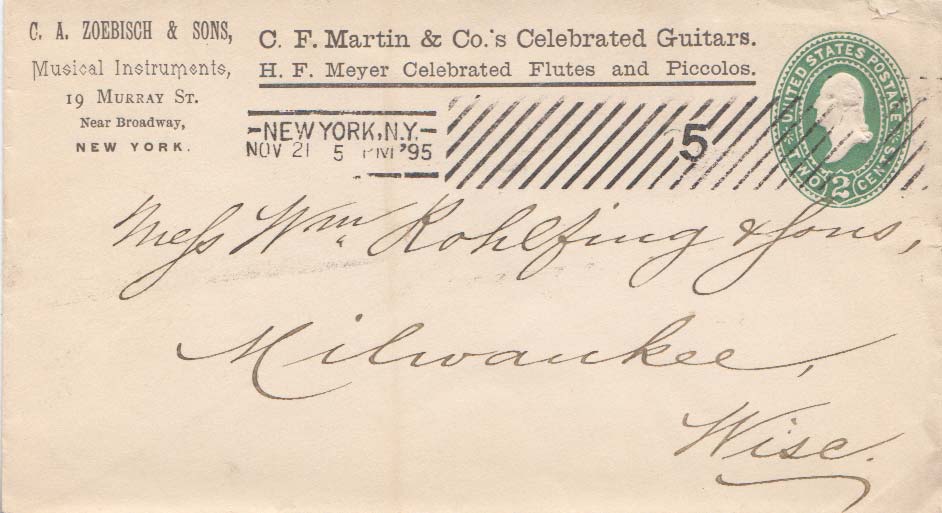 C. A. ZOEBISCH & SONS,
Musical Instruments,
19 MURRAY ST.
Near Broadway,
NEW YORK.
C. F. Martin & Co.'s Celebrated Guitars.
H. F. Meyer Celebrated Flutes and Piccolos.
NEW YORK, N.Y.
NOV 21 5 PM '95
5
UNITED STATES POSTAGE
TWO 2 CENTS
Mess Wm. Rohlfing & Sons,
Milwaukee,
Wisc.